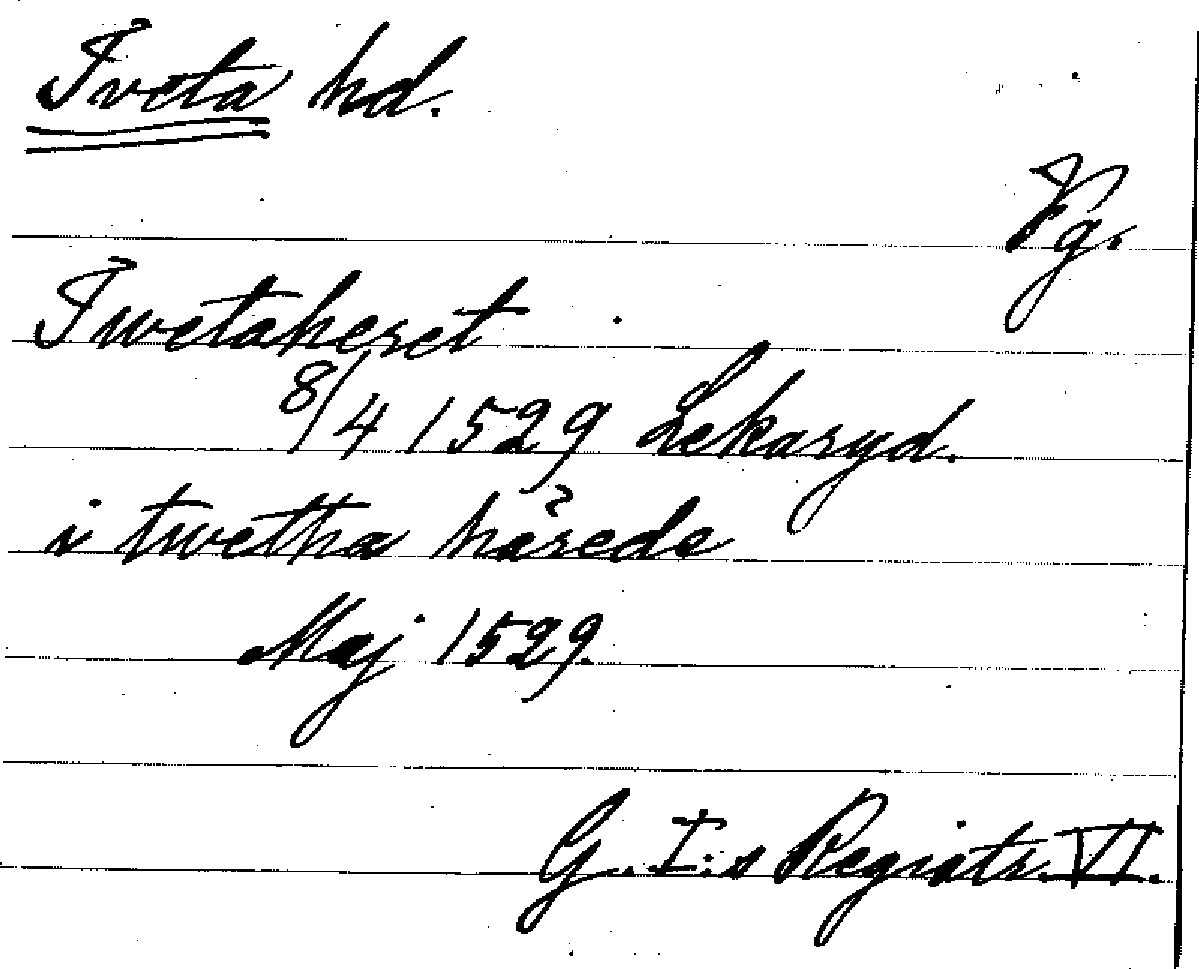 Tveta hd.
Vg.
Twetaheret
8/4 1529 Lekaryd.
i twetha härede
Maj 1529.
G. I:s Registr. VI.